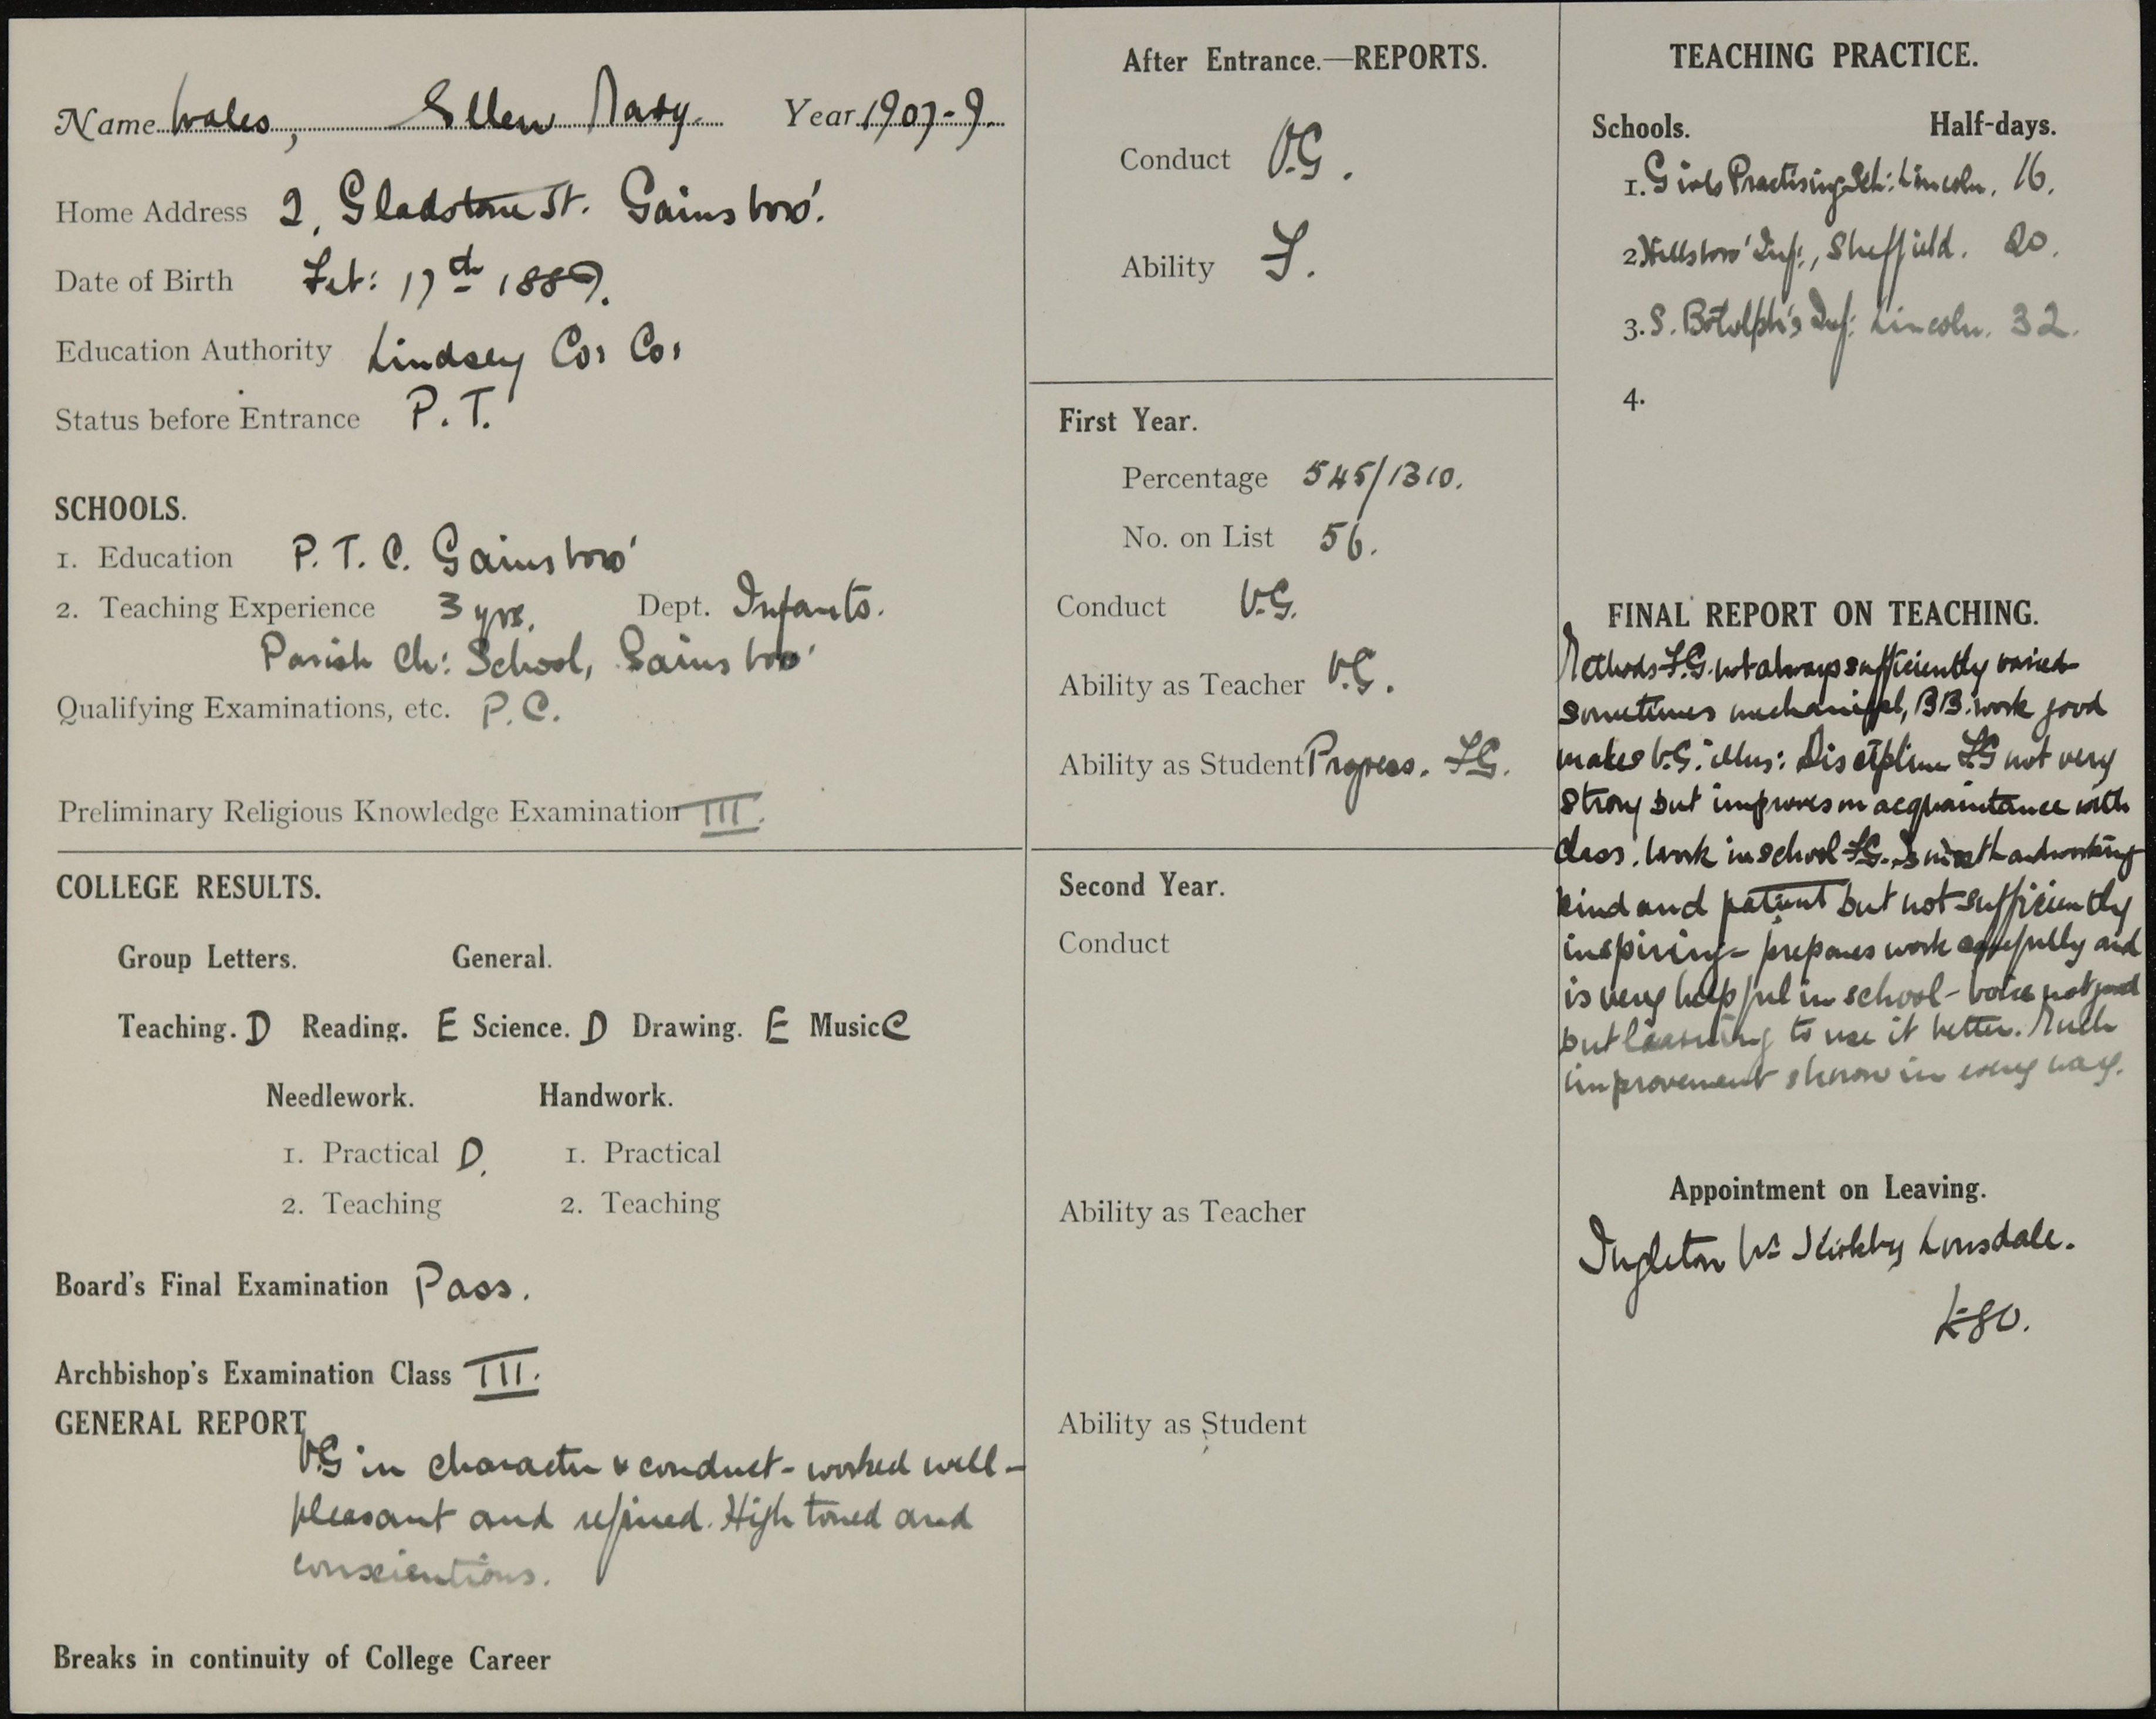 Name Wales, Ellen Mary. Year 1907-9.
Home Address 2, Gladstone St. Gainsboro'.
Date of Birth Feb: 17th 1889.
Education Authority Lindsey Co: Co:
Status before Entrance P.T.
SCHOOLS.
1. Education P. T. C. Gainsboro'
2. Teaching Experience 3 yrs. Dept. Infants.
Parish Ch: School, Gainsboro'
Qualifying Examinations, etc. P.C.
Preliminary Religious Knowledge Examination III.
COLLEGE RESULTS.
Group Letters. General.
Teaching. D Reading. E Science. D Drawing. E Music C
Needlework. Handwork.
1. Practical D. 1. Practical
2. Teaching 2. Teaching
Board's Final Examination Pass.
Archbishop's Examination Class III.
GENERAL REPORT
V.G in character & conduct - worked well -
pleasant and refined. High toned and
conscientious.
Breaks in continuity of College Career
After Entrance.—REPORTS.
Conduct V.G.
Ability F.
First Year.
Percentage 545/1310.
No. on List 56.
Conduct V.G.
Ability as Teacher V.G.
Ability as Student Progress. FG.
Second Year.
Conduct
Ability as Teacher
Ability as Student
TEACHING PRACTICE.
Schools. Half-days.
1. Girls Practising Sch: Lincoln. 16.
2. Hillsboro' Inf:, Sheffield. 20.
3. S. Botolph's Inf: Lincoln. 32.
4.
FINAL REPORT ON TEACHING.
Methods F.G. not always sufficiently varied
sometimes mechanical, BB. work good
makes V.G. illus: Discipline FG not very
strong but improves on acquaintance with
class. Work in school FG. Is most hardworking
kind and patient but not sufficiently
inspiring - prepares work carefully and
is very helpful in school - voice not good
but learning to use it better. Much
improvement shown in every way.
Appointment on Leaving.
Ingleton Kirkby Lonsdale.
£80.